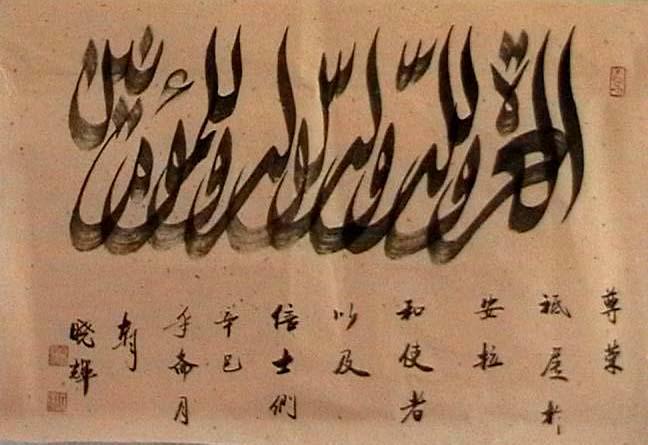 العزة ولله ولرسوله وللمؤمنين
尊荣
祗属於
安拉
和使者
以及
信士們
辛巳
年斋月
晓輝